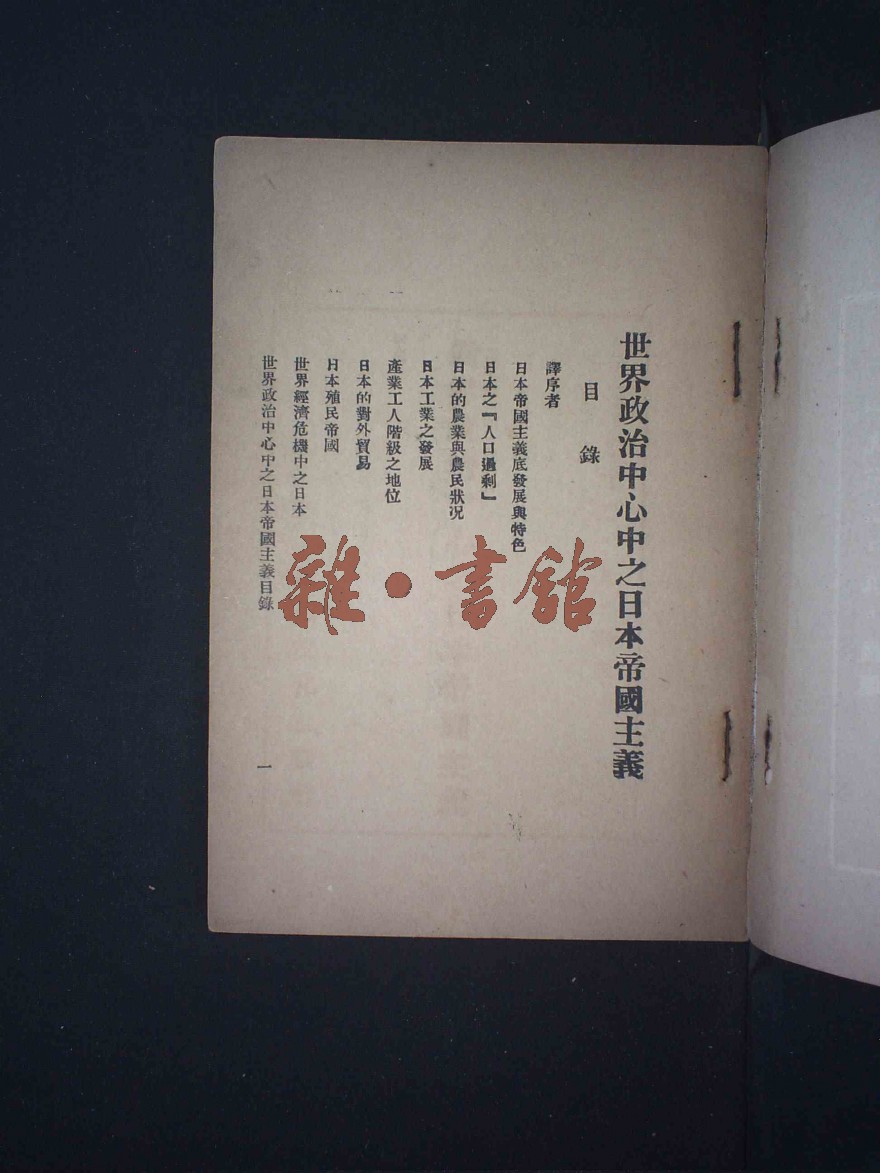 世界政治中心中之日本帝國主義
目錄
譯序者
日本帝國主義底發展與特色
日本之『人口過剩』
日本的農業與農民狀况
日本工業之發展
產業工人階級之地位
日本的對外貿易
日本殖民帝國
世界經濟危機中之日本
世界政治中心中之日本帝國主義目錄
一
雜·書館